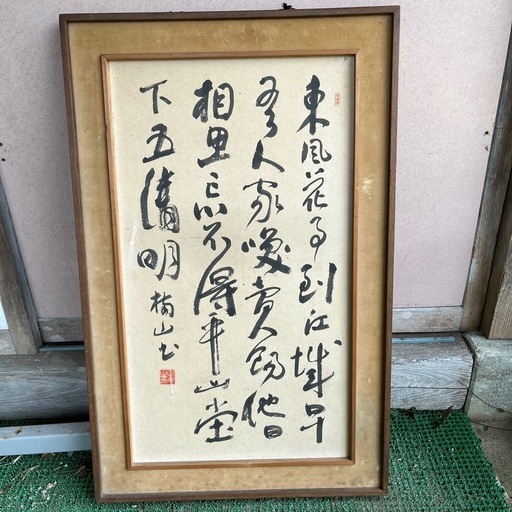 東風花事到江城早
有人家喚賣餳他日
相思忘不得平山堂
下五清明
山書